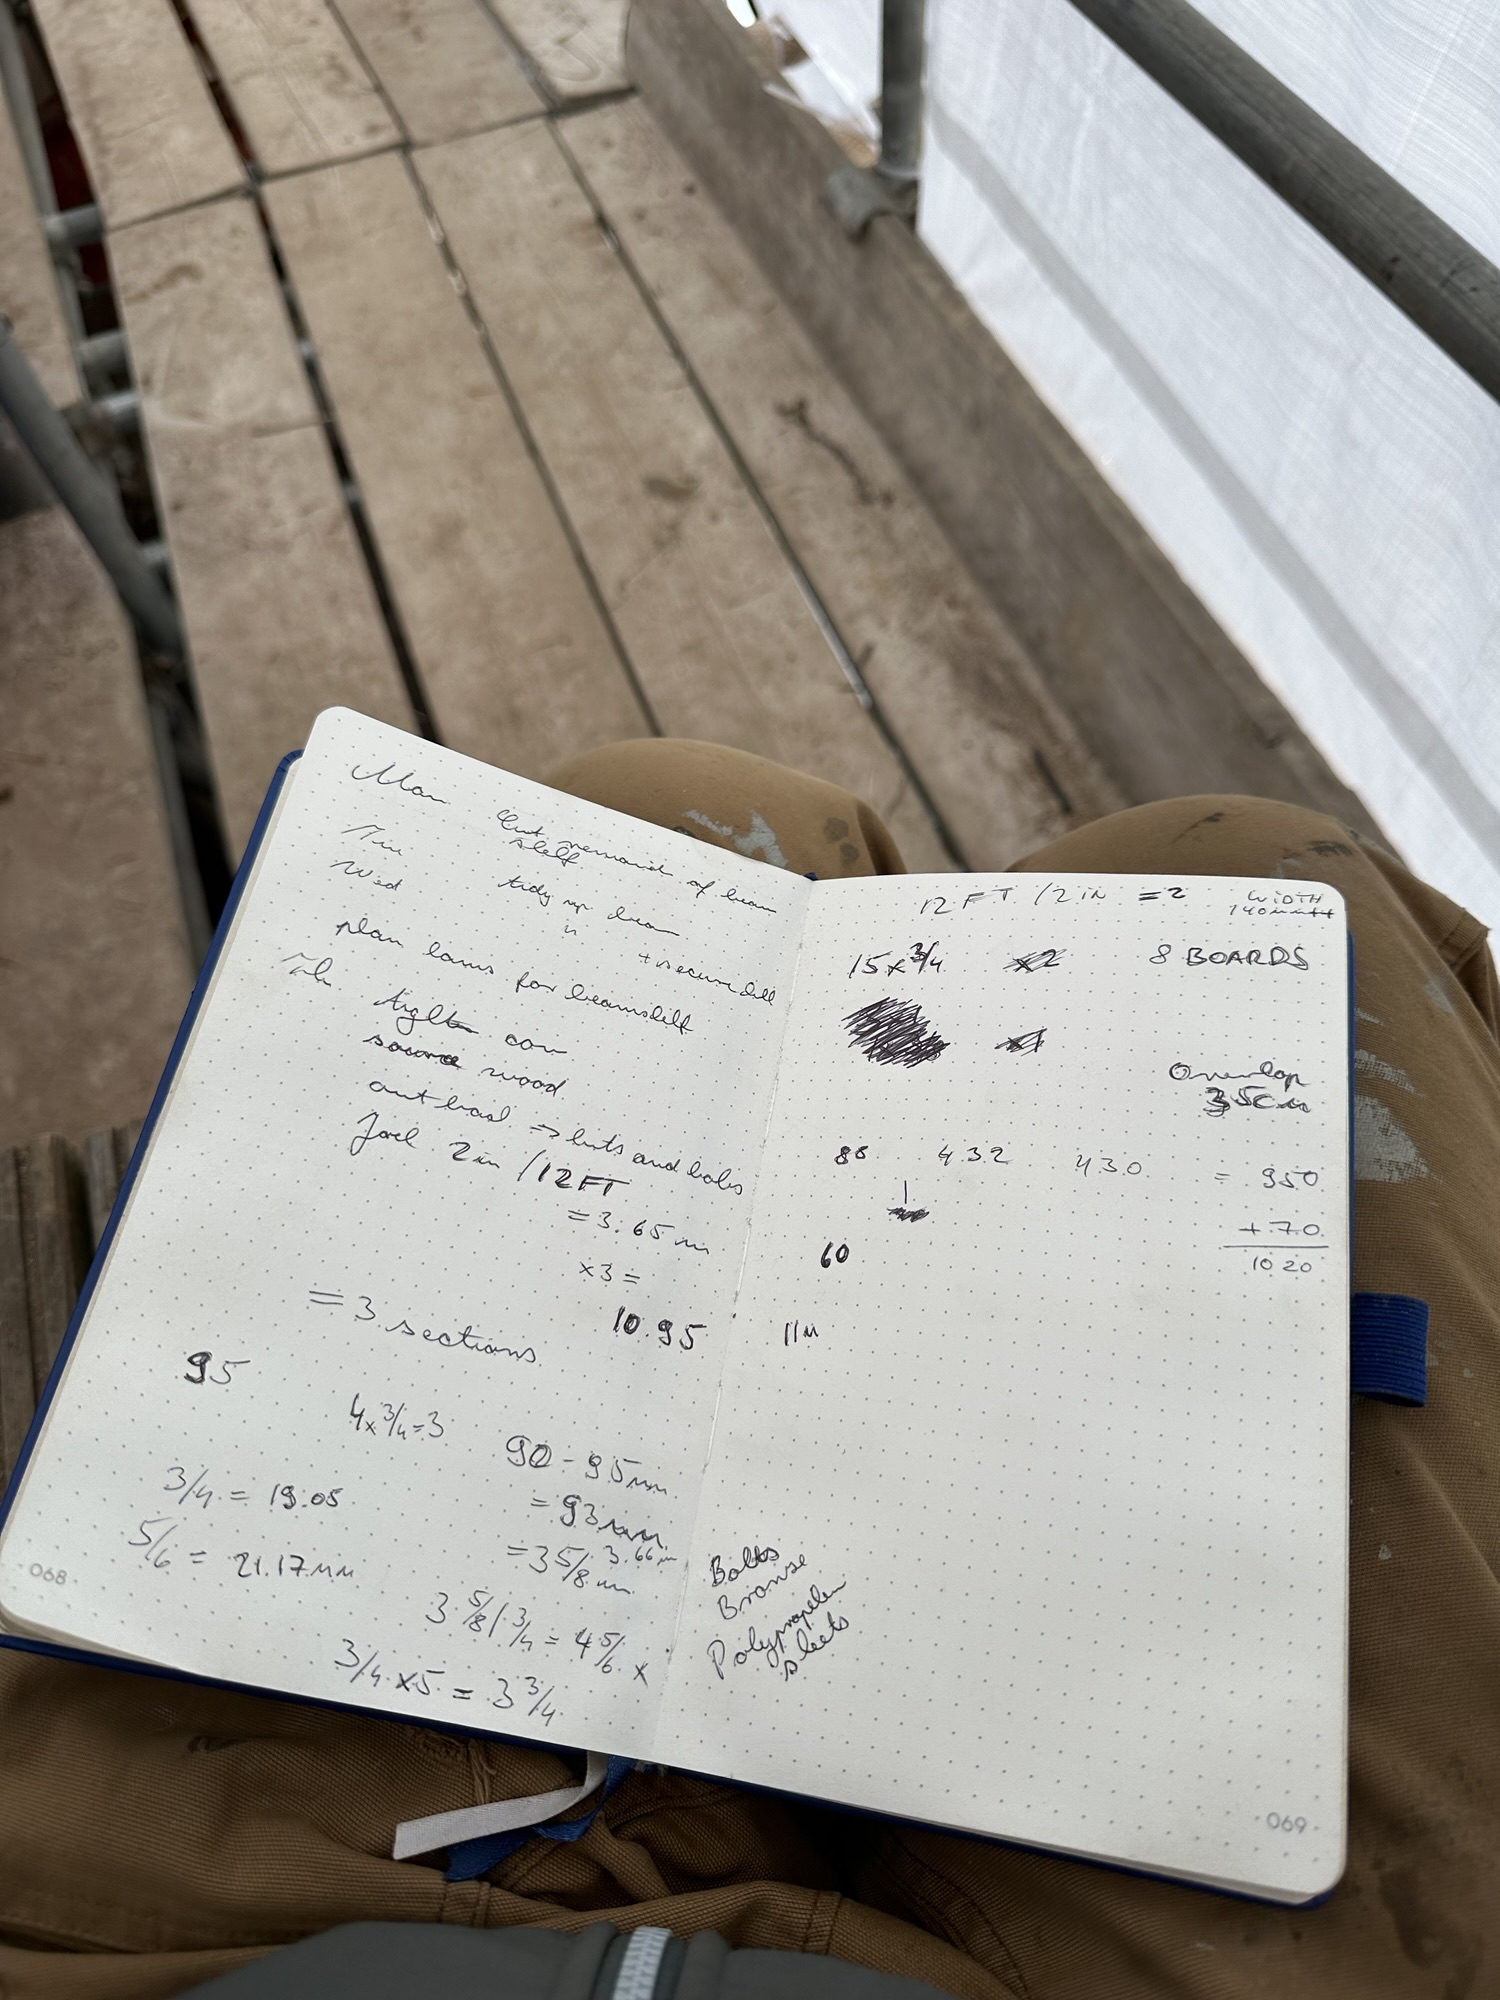 Mon
Cut remaind of beam
shelf
Tue
tidy up beam
Wed
"
+ secure dell
plan lams for beamshelf
Th
source wood
out haul => luts and bolts
Joel 2in / 12FT
= 3.65 m
x3 =
= 3 sections
10.95
95
4x 3/4 = 3
90 - 95mm
3/4 = 19.05
= 93mm
5/6 = 21.17mm
= 3 5/8 in 3.66m
3 5/8 / 3/4 = 4 5/6 x
3/4 x5 = 3 3/4
068
12 FT /2 in = 2
WIDTH
140mm
15 x 3/4 x2
8 BOARDS
Overlap
35cm
88 432 430 = 950
+ 70
60
1020
11m
Bolts
Bronse
Polypropelen
sheets
069